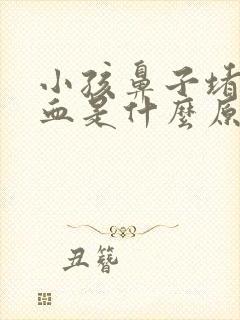 小孩鼻子堵
血是什麼原
丑簪